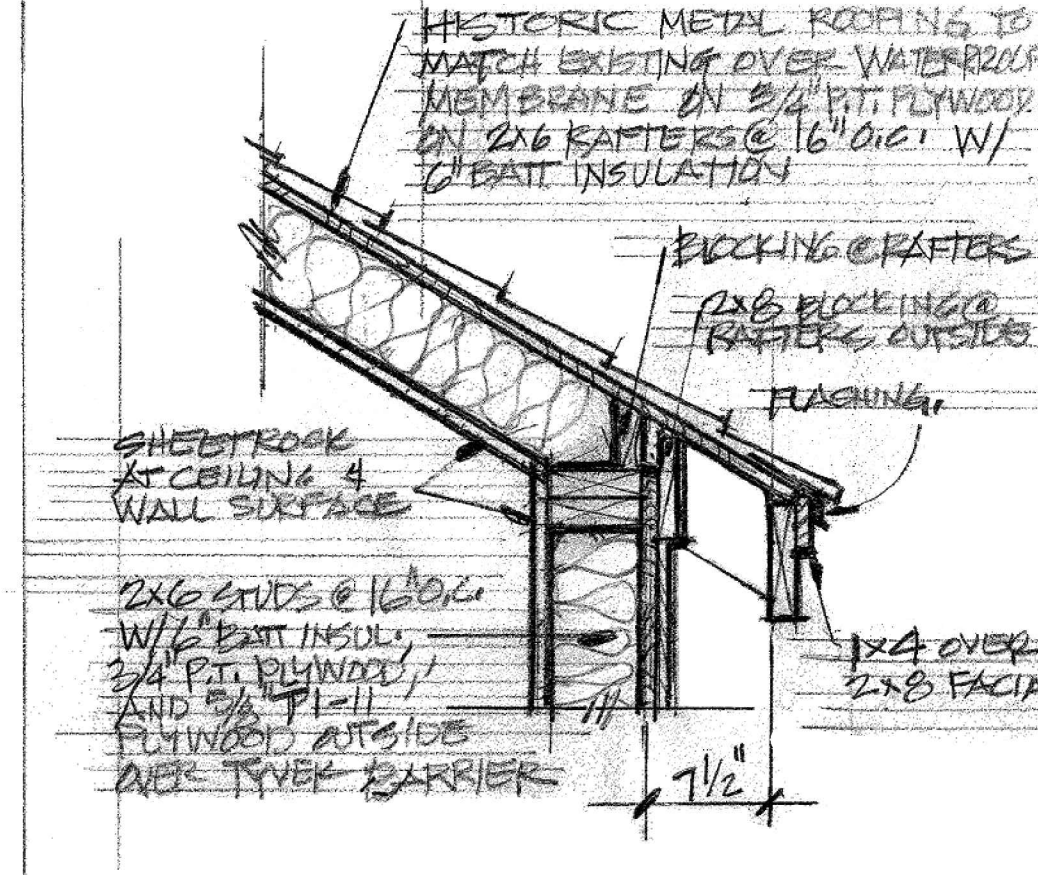 HISTORIC METAL ROOFING TO
MATCH EXISTING OVER WATERPROOF
MEMBRANE ON 3/4" P.T. PLYWOOD
ON 2X6 RAFTERS @ 16" O.C. W/
6" BATT INSULATION
BLOCKING @ RAFTERS
2X8 BLOCKING @
RAFTERS OUTSIDE
FLASHING.
SHEETROCK
AT CEILING &
WALL SURFACE
2X6 STUDS @ 16" O.C.
W/6" BATT INSUL.,
3/4" P.T. PLYWOOD,
AND 5/8" T1-11
PLYWOOD OUTSIDE
OVER TYVEK BARRIER
1X4 OVER
2X8 FACIA
7 1/2"